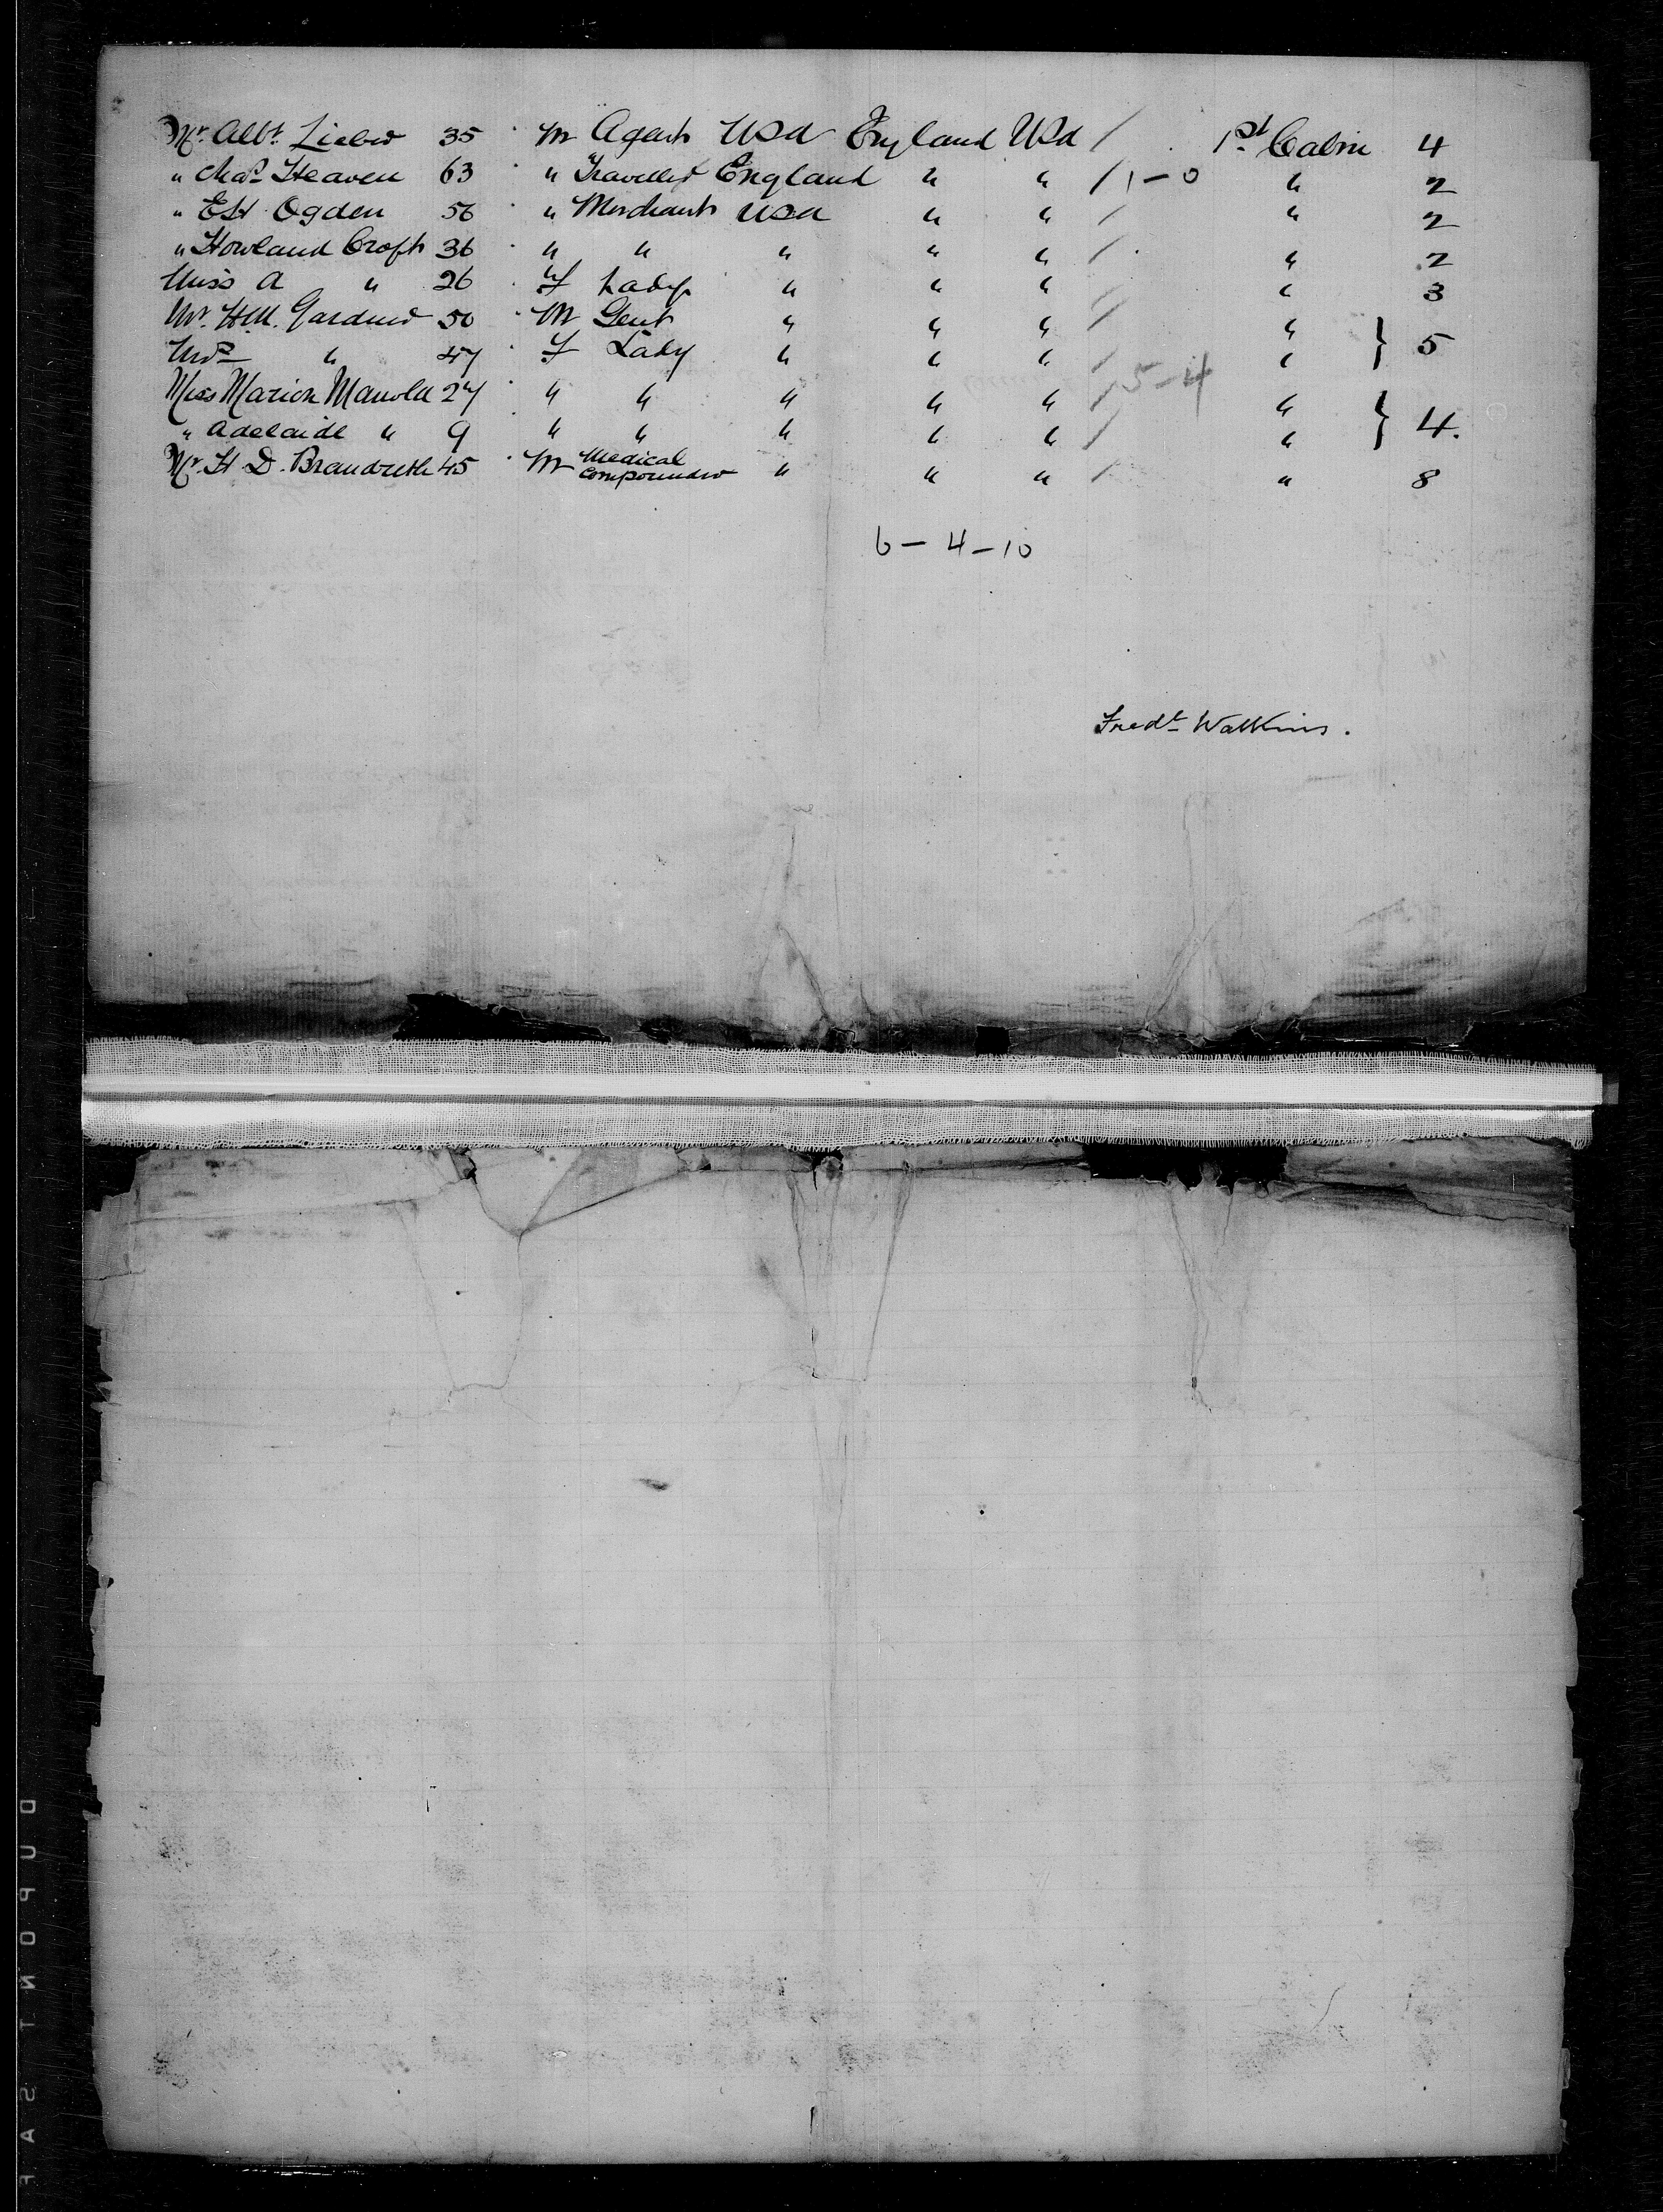 Mr. Albt. Lieber 35 M Agent USA England USA / 1st Cabin 4
" Chas. Heaven 63 " Traveller England " " / 1-0 " 2
" E H Ogden 56 " Merchant USA " " / " 2
" Howland Croft 36 " " " " " / " 2
Miss A " 26 F Lady " " " " 3
Mr. H.M. Gardner 50 M Gent " " " / "
Mrs " 47 F Lady " " " / " } 5
Miss Marion Manola 27 " " " " " / 5-4 "
" Adelaide " 9 " " " " " / " } 4.
Mr. H. D. Brandreth 45 M Medical Compounder " " " / " 8
6-4-10
Fredk Watkins.
DUPONT SAF